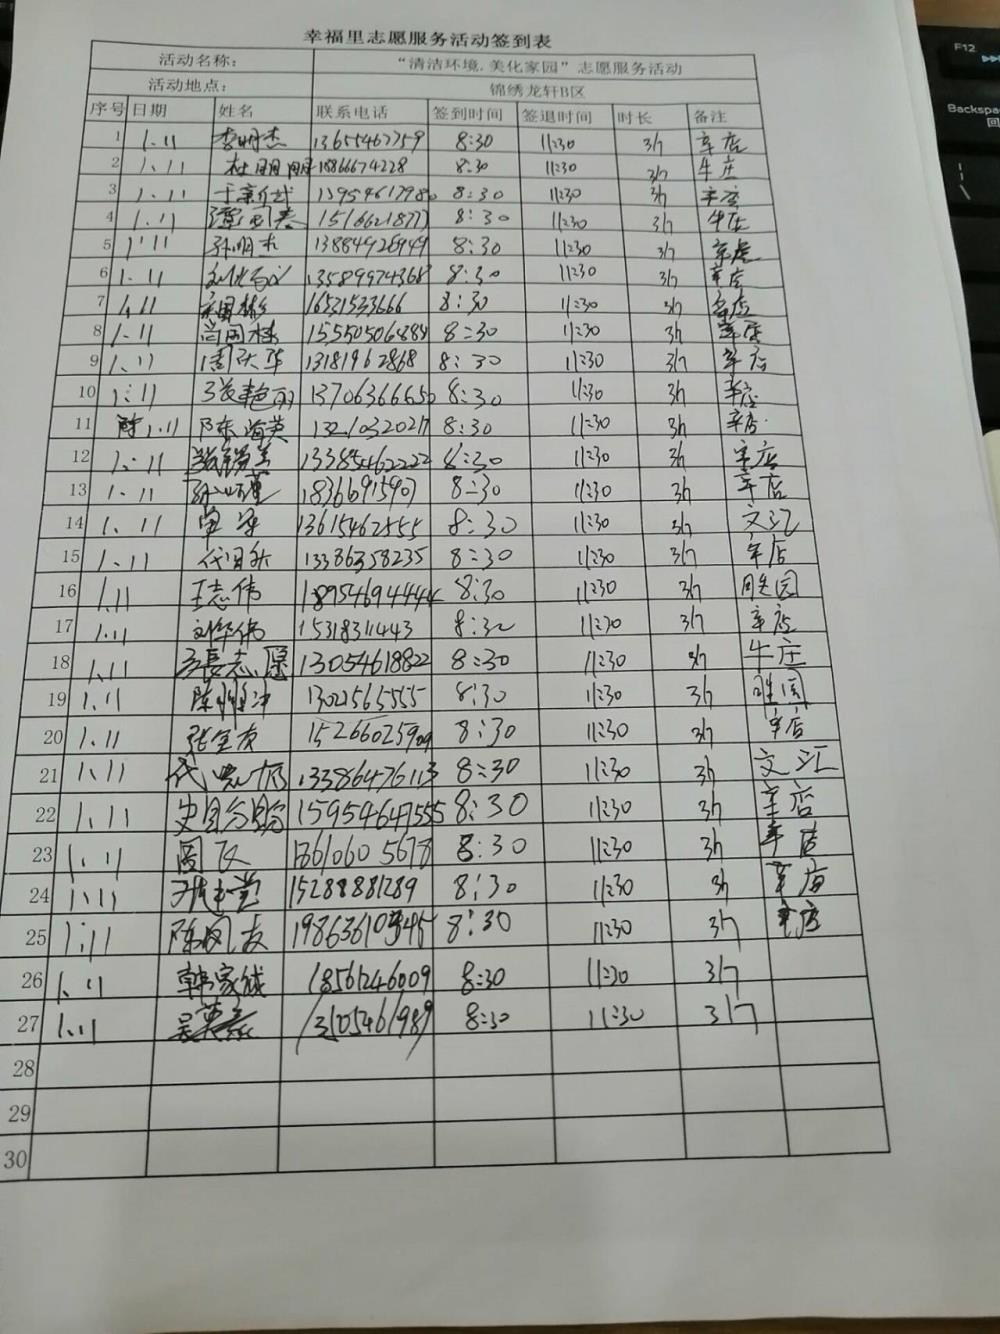 幸福里志愿服务活动签到表
活动名称： “清洁环境.美化家园”志愿服务活动
活动地点： 锦绣龙轩B区
序号 日期 姓名 联系电话 签到时间 签退时间 时长 备注
1 1.11 李明杰 13655467759 8:30 11:30 3h 辛店
2 1.11 杜朋朋 18866674228 8:30 11:30 3h 牛庄
3 1.11 8:30 11:30 3h 辛店
4 1.11 15166218777 8:30 11:30 3h 牛庄
5 1.11 孙明杰 13884926949 8:30 11:30 3h 辛店
6 1.11 13589974368 8:30 11:30 3h 辛店
7 1.11 16521533666 8:30 11:30 3h 辛店
8 1.11 尚国栋 8:30 11:30 3h 辛店
9 1.11 周庆华 13181962868 8:30 11:30 3h 辛店
10 1.11 13706366650 8:30 11:30 3h 辛店
11 1.11 陈海英 13210320217 8:30 11:30 3h 辛店
12 1.11 13385462222 8:30 11:30 3h 辛店
13 1.11 18366915907 8:30 11:30 3h 辛店
14 1.11 13615462555 8:30 11:30 3h 文汇
15 1.11 13386358235 8:30 11:30 3h 辛店
16 1.11 王志伟 18954694444 8:30 11:30 3h
17 1.11 刘华伟 15318311443 8:30 11:30 3h 辛店
18 1.11 13054618822 8:30 11:30 3h 牛庄
19 1.11 13021565555 8:30 11:30 3h 胜园
20 1.11 张金友 15266025909 8:30 11:30 3h 辛店
21 1.11 13386476113 8:30 11:30 3h 文汇
22 1.11 15954647555 8:30 11:30 3h 辛店
23 1.11 周飞 176610605678 8:30 11:30 3h 辛店
24 1.11 15288881289 8:30 11:30 3h 辛店
25 1.11 陈凤友 8:30 11:30 3h 辛店
26 1.11 韩家城 18561246009 8:30 11:30 3h
27 1.11 13105461989 8:30 11:30 3h
28
29
30
F12
Backspace